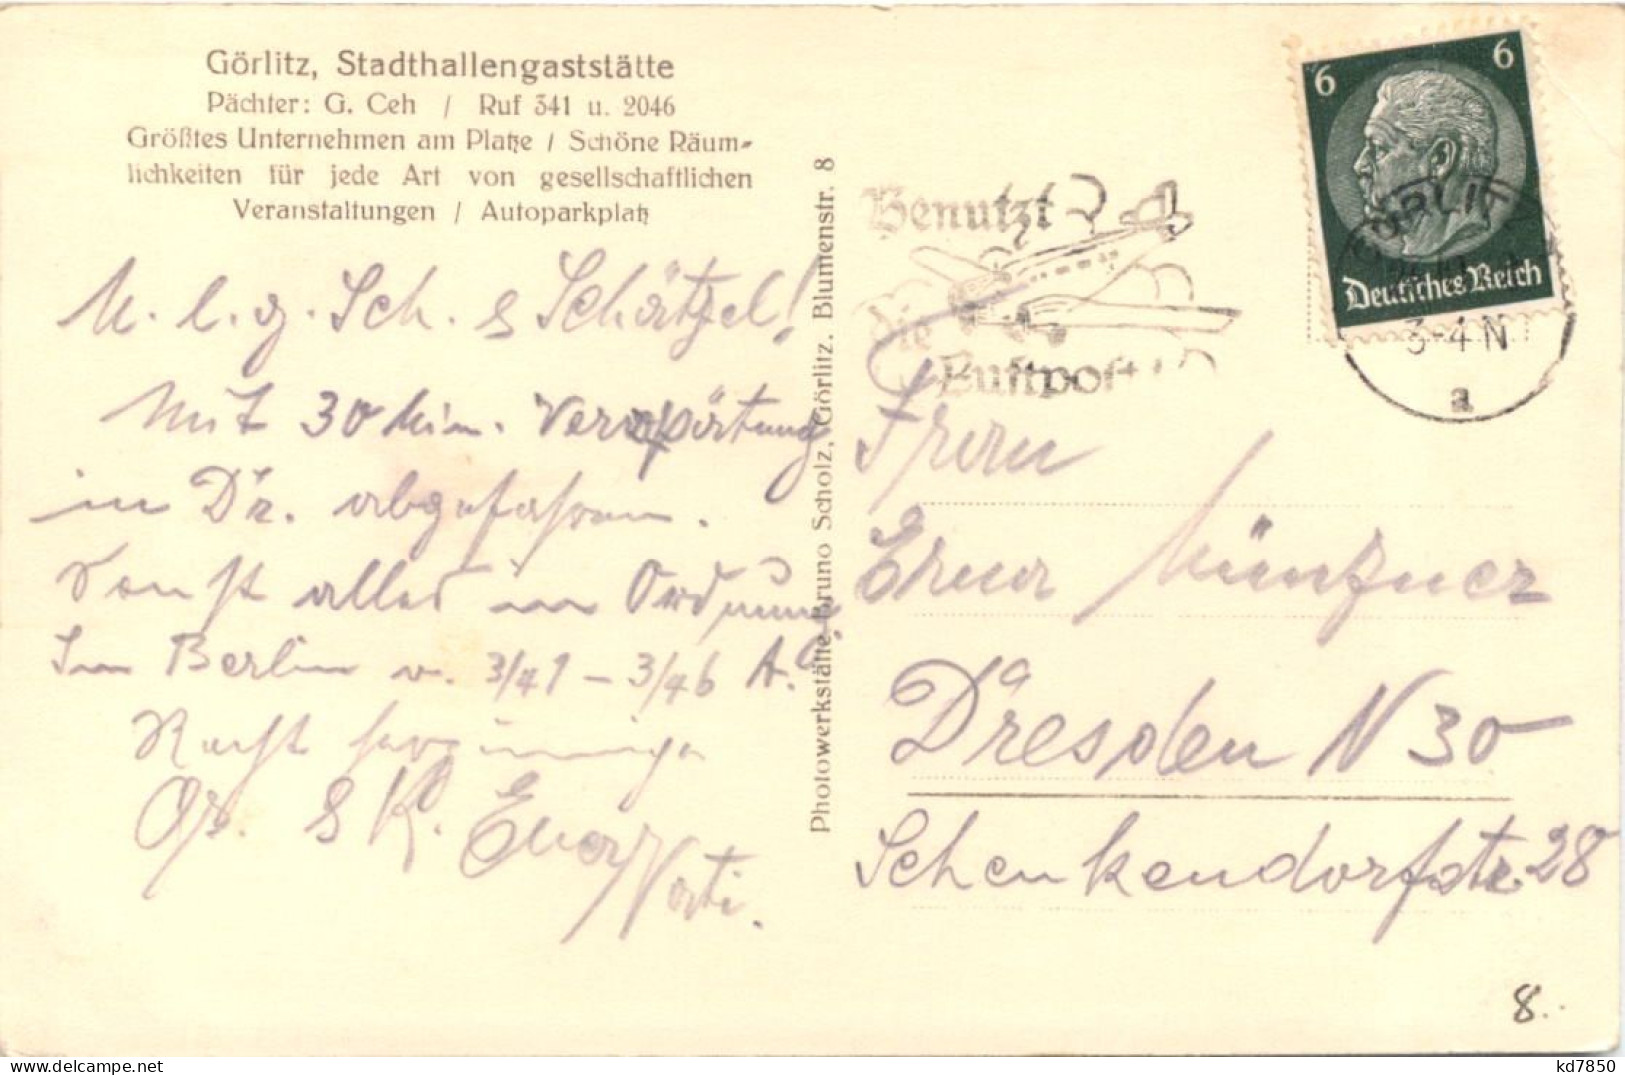 Görlitz, Stadthallengaststätte
Pächter: G. Ceh / Ruf 341 u. 2046
Größtes Unternehmen am Platze / Schöne Räum-
lichkeiten für jede Art von gesellschaftlichen
Veranstaltungen / Autoparkplatz
M. l. g. Sch. & Schätzel!
Mit 30 Min. Verspätung
in Dr. abgefahren.
Sonst alles in Ordnung
Im Berlin v. 3/41 – 3/46 A.
Recht
Gr. & K. Euer Vati.
Photowerkstätte Bruno Scholz, Görlitz. Blumenstr. 8
Benutzt
die
Luftpost
6 6
Deutsches Reich
GÖRLITZ
3-4 N
a
Frau
Erna Münzner
Dresden N 30
Schenkendorfstr. 28
8.
kd7850